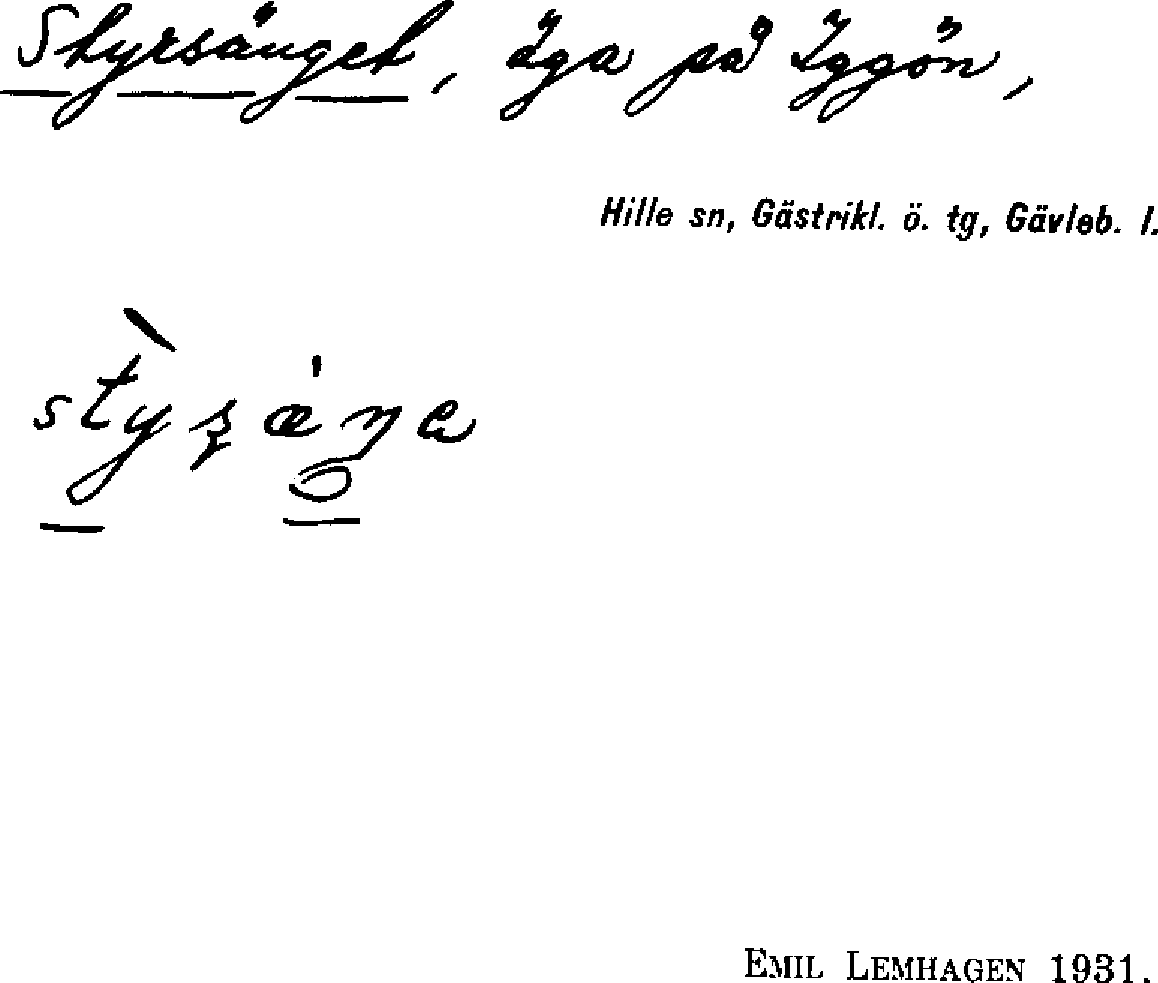 Styrsänget, äga på Iggön,
Hille sn, Gästrikl. ö. tg, Gävleb. l.
EMIL LEMHAGEN 1931.